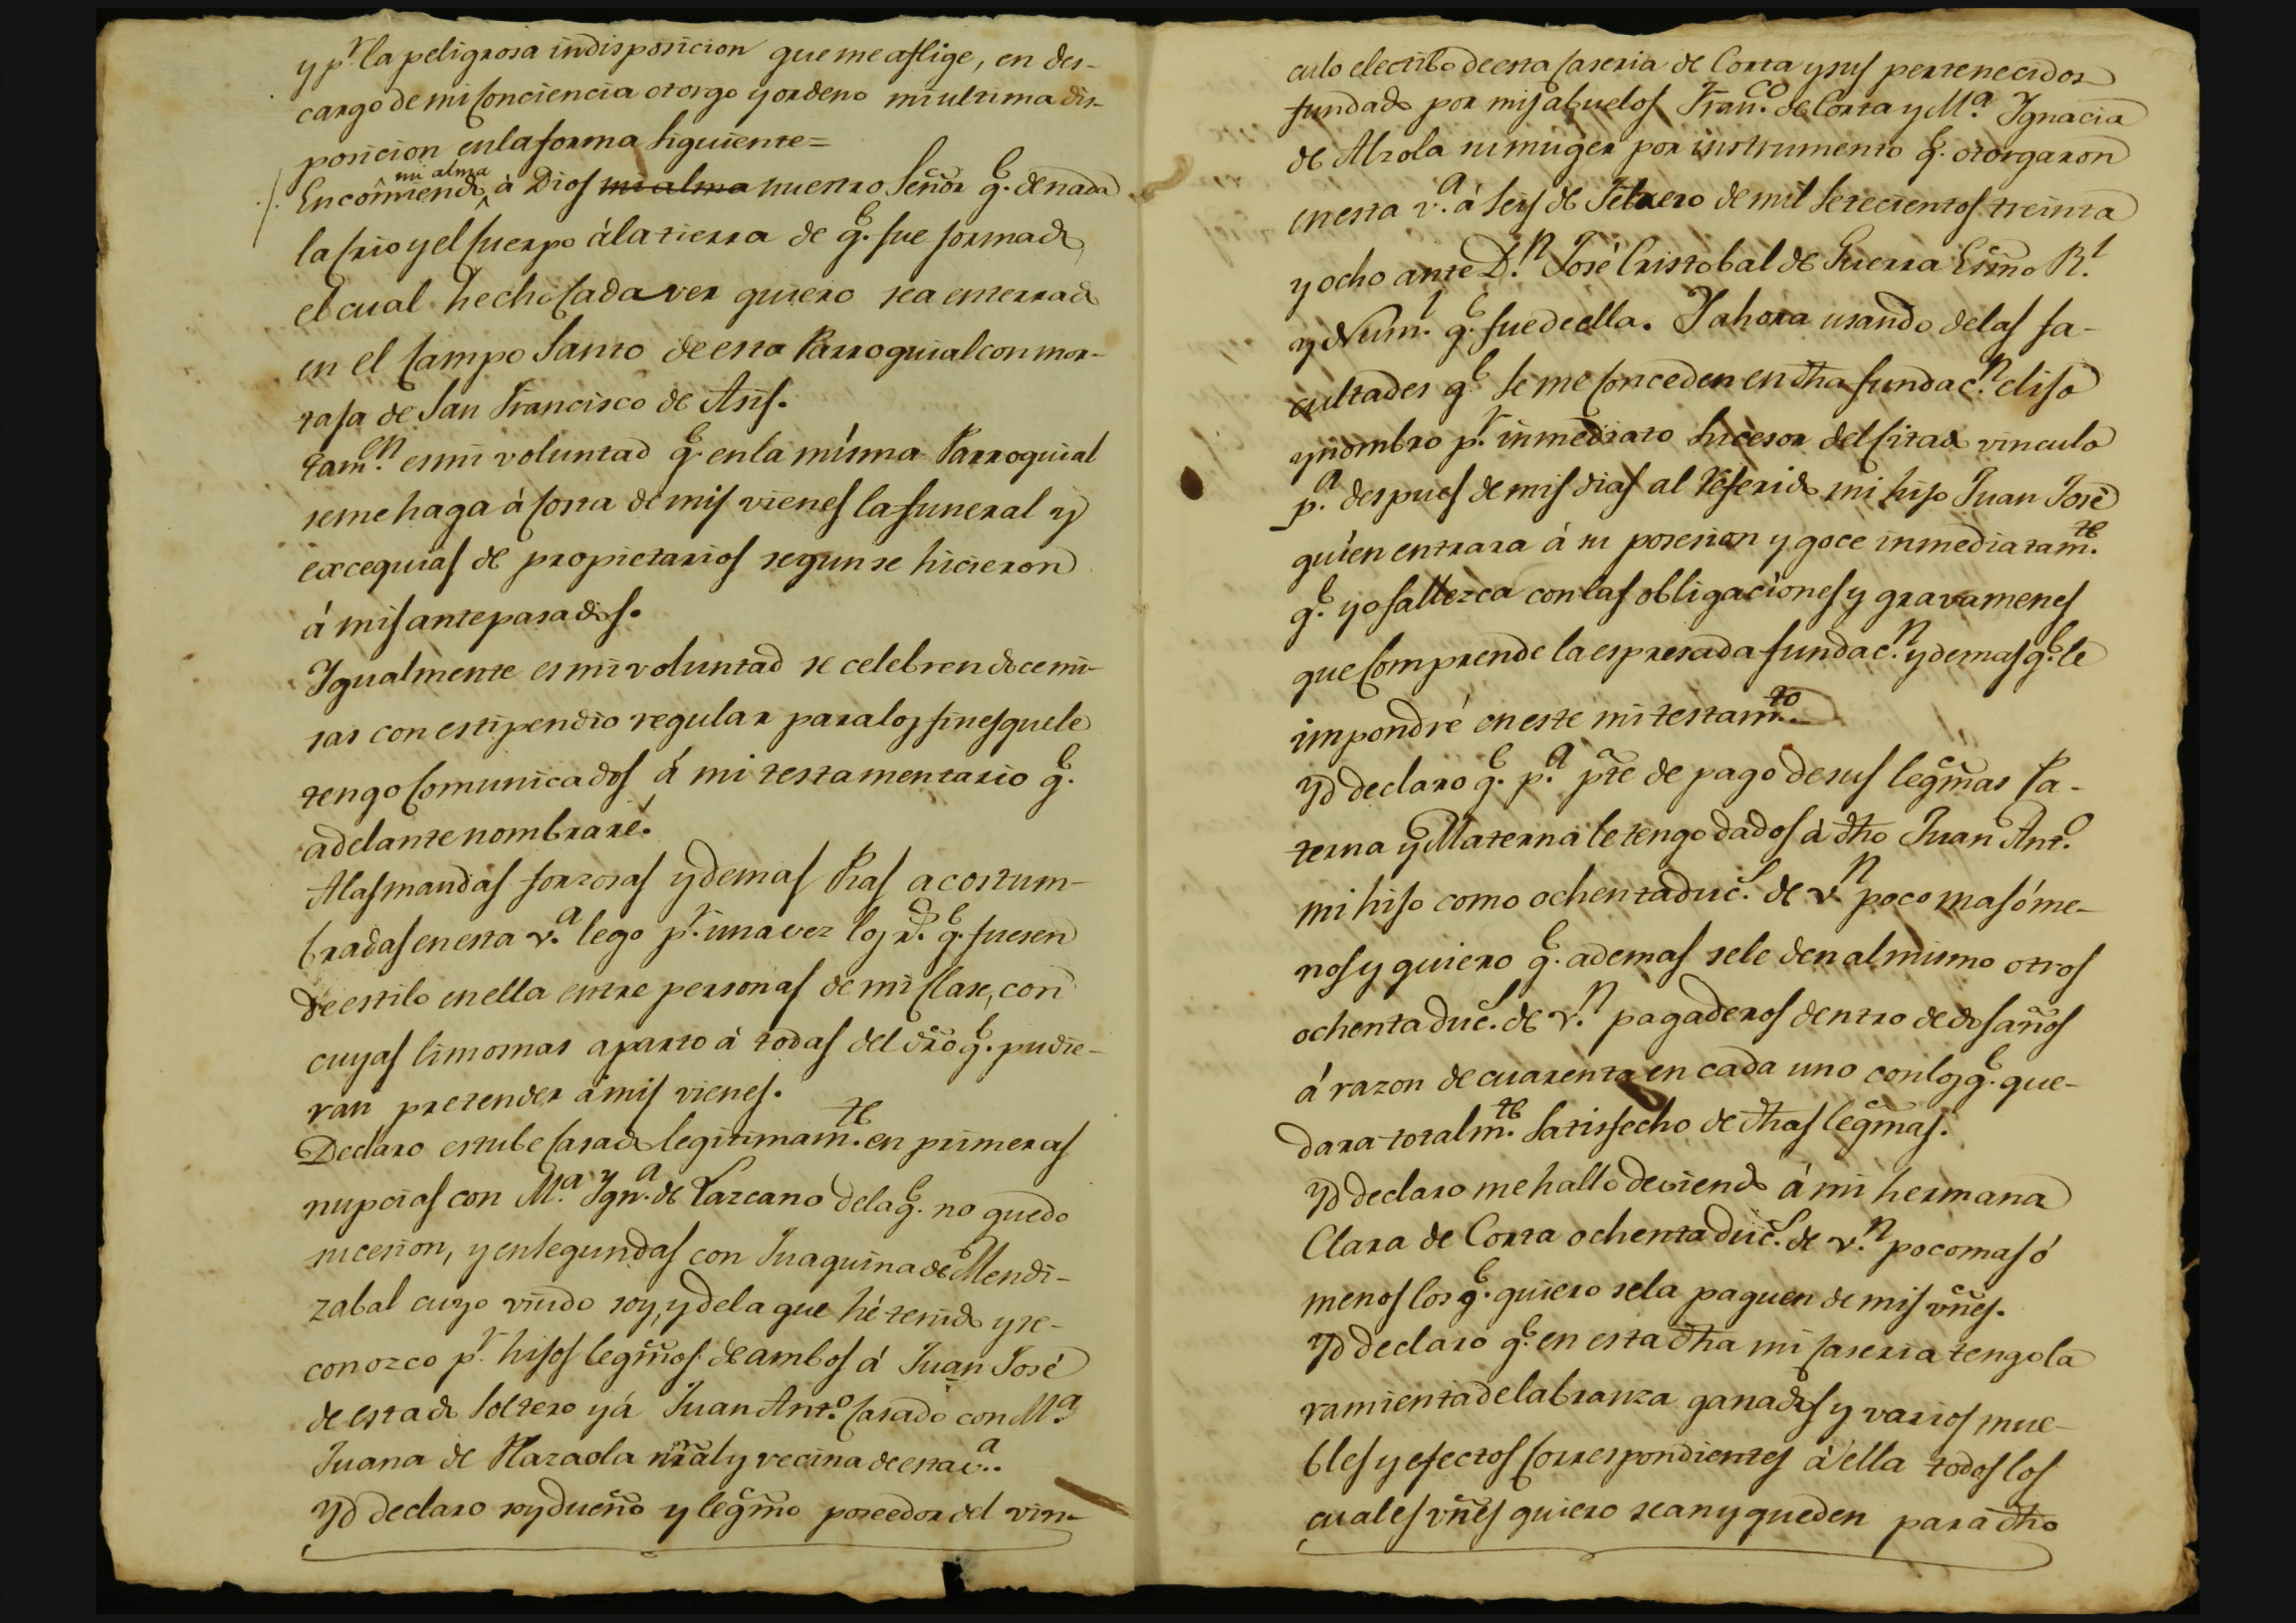 y p.r la peligrosa indisposicion que me aflige, en des-
cargo de mi Conciencia otorgo y ordeno mi ultima dis-
posicion en la forma siguiente=
mi alma
Encomiendo à Dios mi alma nuestro Señor q.e de nada
la Crio y el Cuerpo à la tierra de q.e fue formado,
el cual hecho Cadaver quiero sea enterrado
en el Campo Santo de esta Parroquial con mor-
taja de San Francisco de Asis.
Tam.en es mi voluntad q.e en la misma Parroquial
se me haga à Costa de mis vienes la funeral y
excequias de propietarios segun se hicieron
á mis antepasados.
Igualmente es mi voluntad se celebren doce mi-
sas con estipendio regular para los fines que le
tengo Comunicados á mi testamentario q.e
adelante nombraré.
A las mandas forzosas y demas Pias acostum-
bradas en esta v.a lego p.r una vez los r.s q.e fuesen
de estilo en ella entre personas de mi Clase, con
cuyas limosnas aparto à todas del dr̃o q.e pudie-
ran pretender à mis vienes.
Declaro estube Casado legitimam.te en primeras
nupcias con M.a Ygn.a de Lazcano de la q.e no quedo
sucesion, y en segundas con Juaquina de Mendi-
zabal cuyo viudo soy, y de la que hé tenido y re-
conozco p.r hijos legm̃os de ambos á Juan José
de estado Soltero y á Juan Ant.o Casado con M.a
Juana de Plazaola nr̃al y vecina de esta v.a
Yd declaro soy dueño y legm̃o poseedor del vin-
culo electibo de esta Caseria de Corta y sus pertenecidos
fundado por mis abuelos Fran.co de Corta y M.a Ignacia
de Alzola su muger por instrumento q.e otorgaron
en esta v.a á Seis de Febrero de mil Setecientos treinta
y ocho ante D.n José Cristobal de Guerra Esc̃no R.l
y de Num.l q.e fue de ella. Y ahora usando de las fa-
cultades q.e Se me Conceden en dh̃a fundac.n elijo
y nombro p.r inmediato Sucesor del Citado vinculo
p.a despues de mis dias al Referido mi hijo Juan José
quien entrara á su posesion y goce inmediatam.te
q.e yo fallezca con las obligaciones y gravamenes
que Comprende la espresada fundac.n y demas q.e le
impondré en este mi testam.to
Yd declaro q.e p.a pt̃e de pago de sus legm̃as Pa-
terna y Materna le tengo dados à dh̃o Juan Ant.o
mi hijo como ochenta duc.s de v.n poco mas ó me-
nos y quiero q.e ademas se le den al mismo otros
ochenta duc.s de v.n pagaderos dentro de dos años
á razon de cuarenta en cada uno con los q.e que-
dara totalm.te Satisfecho de dh̃as legm̃as.
Yd declaro me hallo deviendo á mi hermana
Clara de Corta ochenta duc.s de v.n poco mas ó
menos los q.e quiero se la paguen de mis vñes.
Yd declaro q.e en esta dh̃a mi Caseria tengo la
ramienta de labranza ganados y varios mue-
bles y efectos Correspondientes á ella todos los
cuales vñes quiero sean y queden para dh̃o